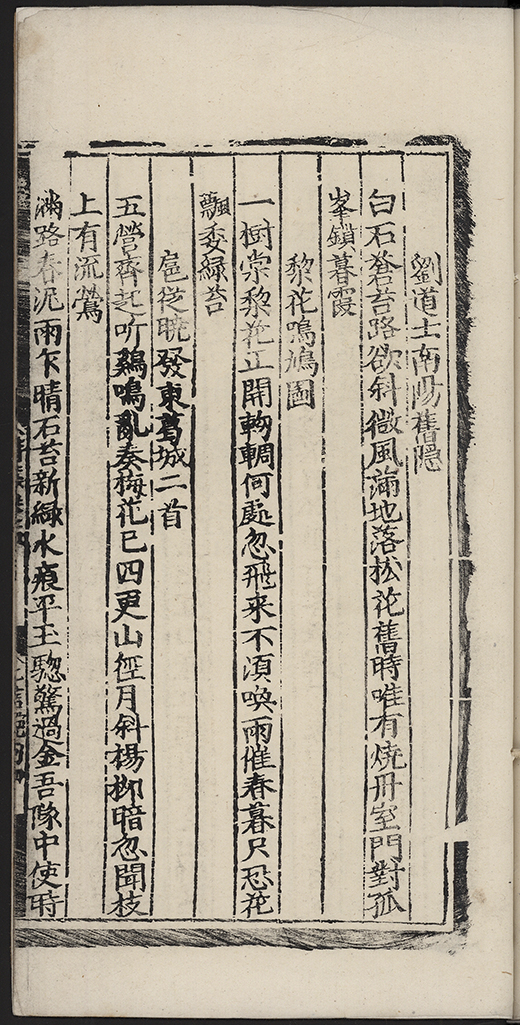 劉道士南陽舊隱
白石蒼苔路欲斜微風滿地落松花舊時唯有燒丹室門對孤
峯鎖暮霞
黎花鳴鳩圖
一樹棠黎花正開軥輖何處忽飛来不須喚雨催春暮尺恐花
飄委緑苔
扈從曉發東葛城二首
五營齊起听鷄鳴亂奏梅花已四更山徑月斜楊柳暗忽聞枝
上有流鶯
滿路春泥雨乍晴石苔新緑水痕平玉騘驚過金吾隊中使時